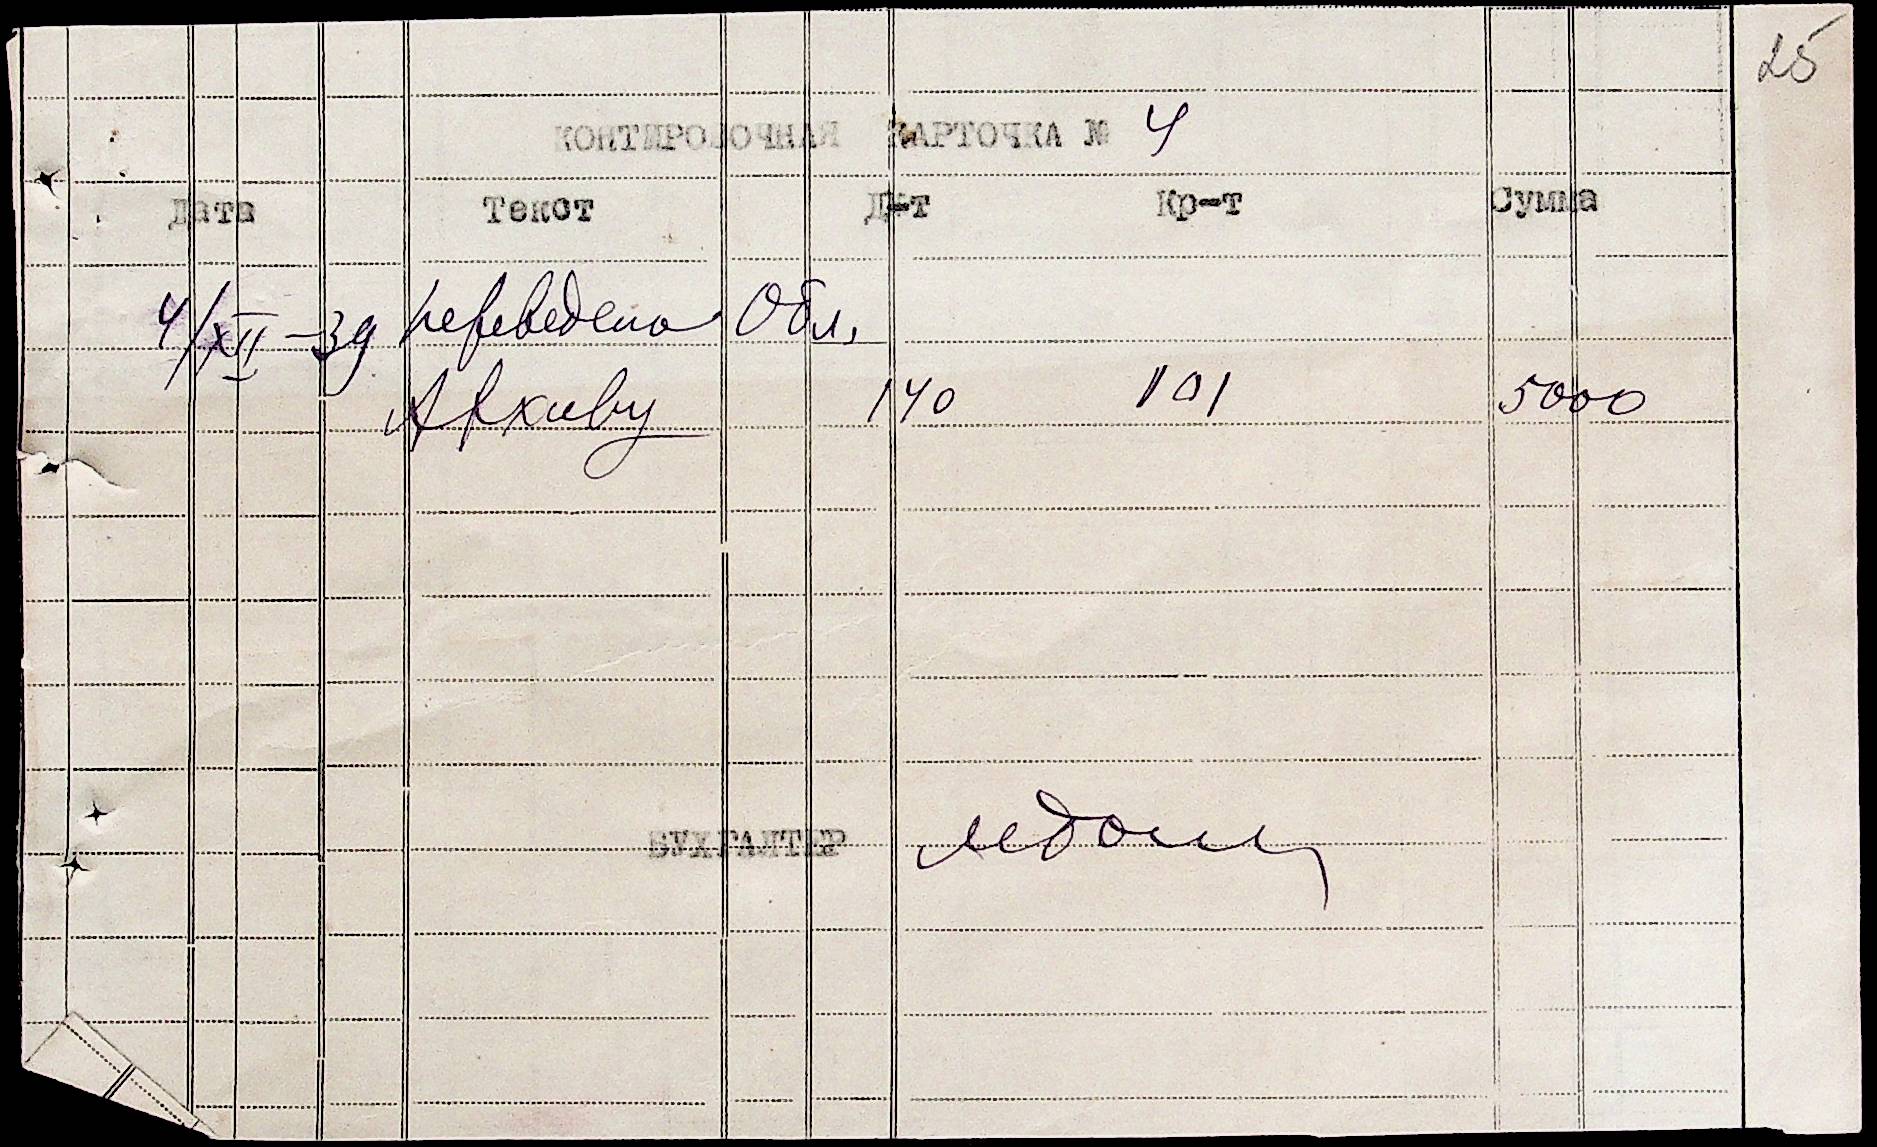 25
КОНТИРОВОЧНАЯ КАРТОЧКА № 4
Дата Текст Д-т Кр-т Сумма
4/XII-39 переведено Обл.
Архиву 140 101 5000
БУХГАЛТЕР